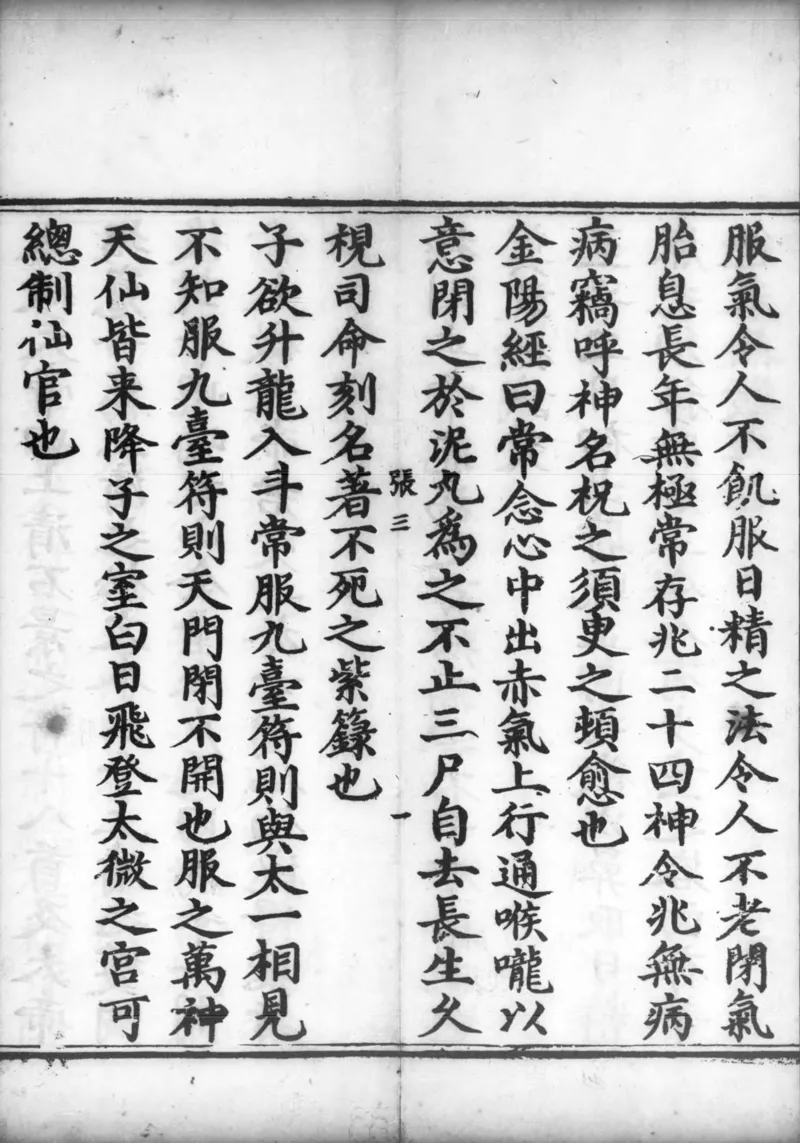 服氣令人不飢服日精之法令人不老閉氣
胎息長年無極常存兆二十四神令兆無病
病竊呼神名祝之須更之頓愈也
金陽經曰常念心中出赤氣上行通喉嚨以
意閉之於泥丸爲之不止三尸自去長生久
張三
一
視司命刻名著不死之紫籙也
子欲升龍入斗常服九臺符則與太一相見
不知服九臺符則天門閉不開也服之萬神
天仙皆来降子之室白日飛登太微之宫可
總制仙官也